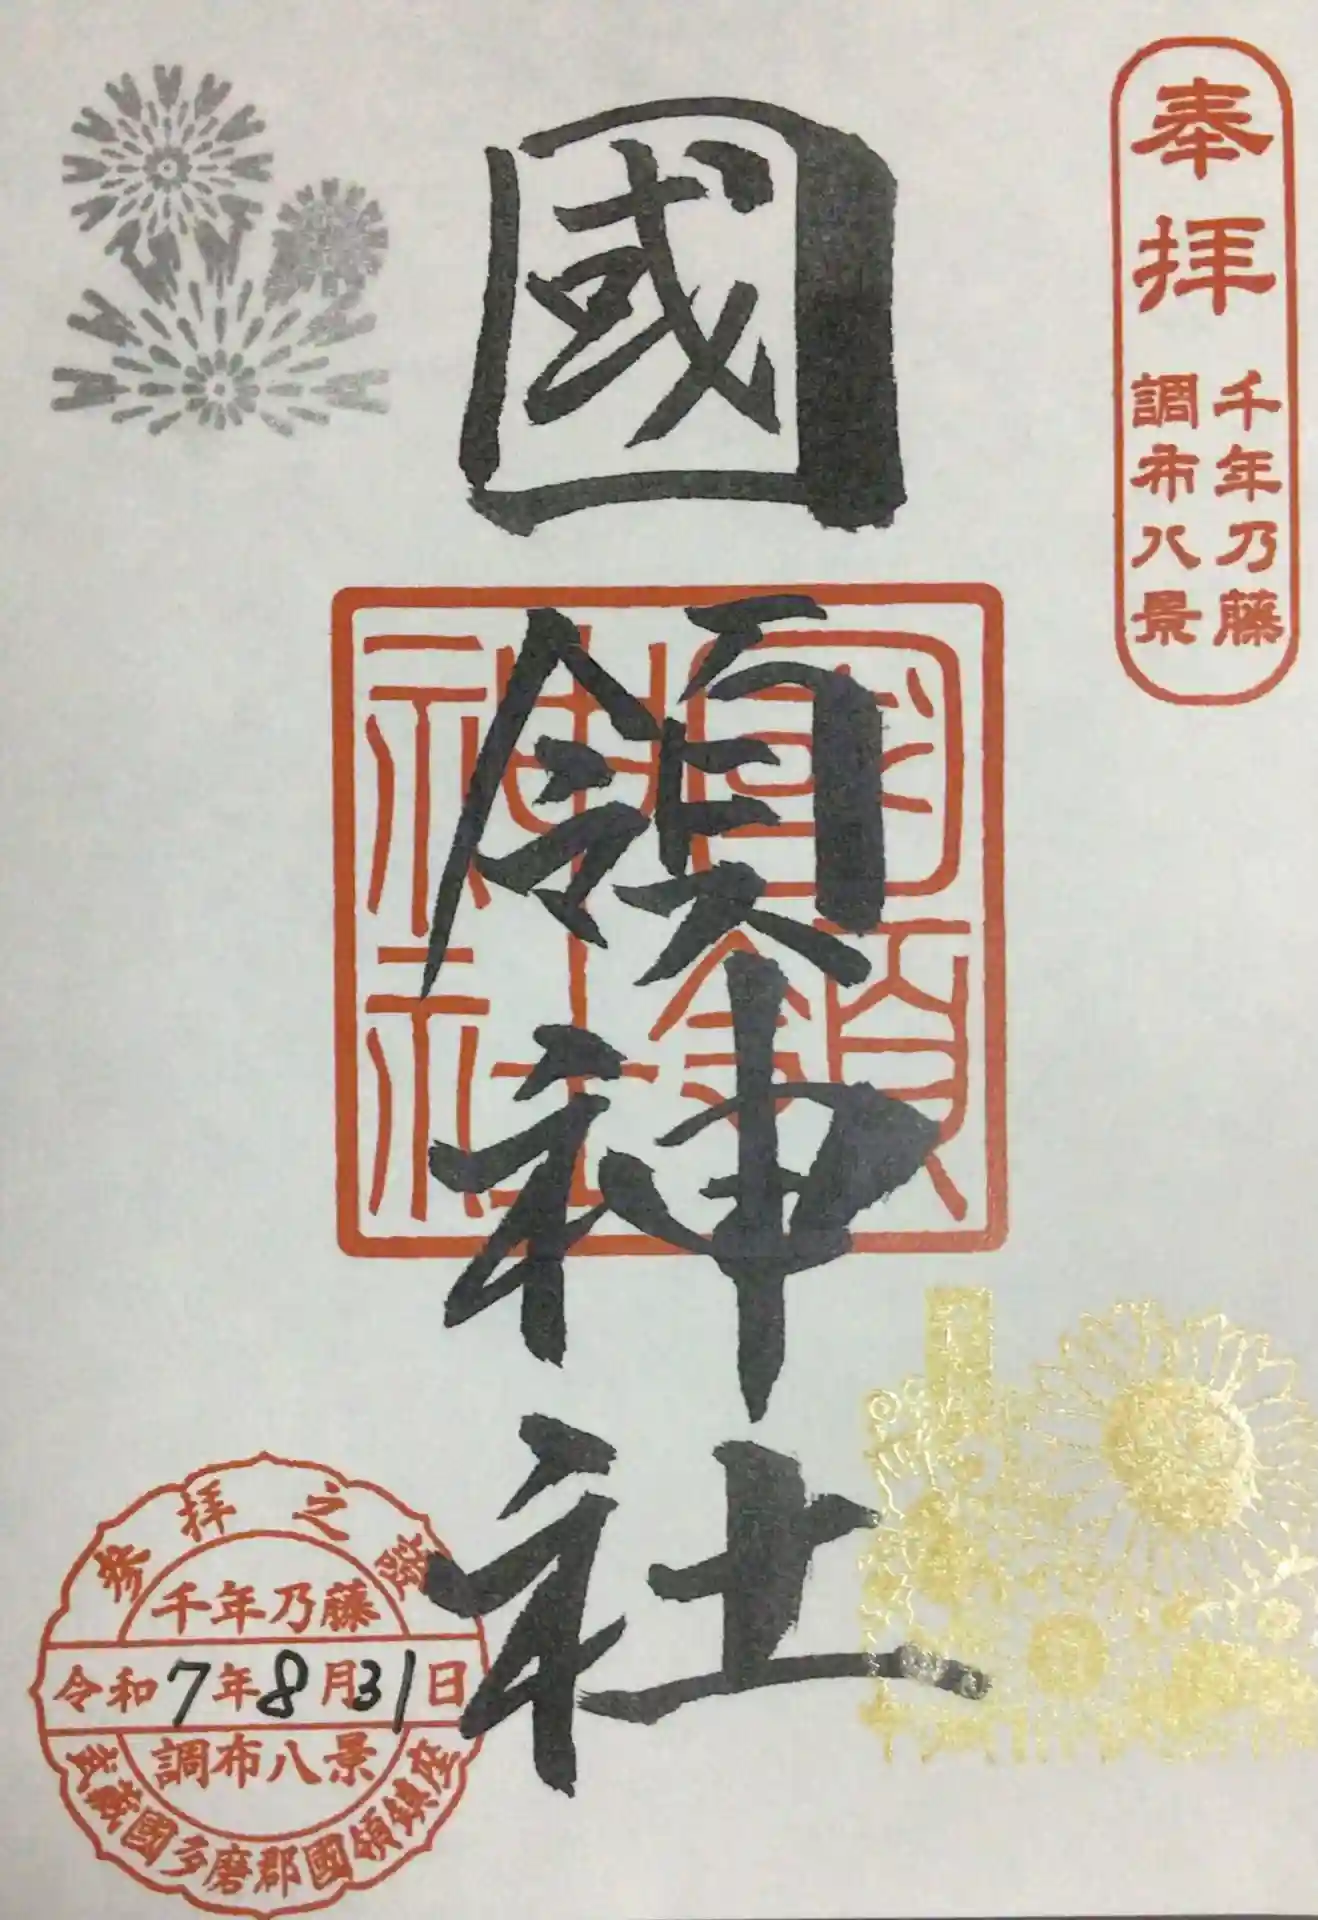 奉拝
千年乃藤
調布八景
國領神社
國領
神社
参拝之證
千年乃藤
令和7年8月31日
調布八景
武蔵國多磨郡國領鎮座